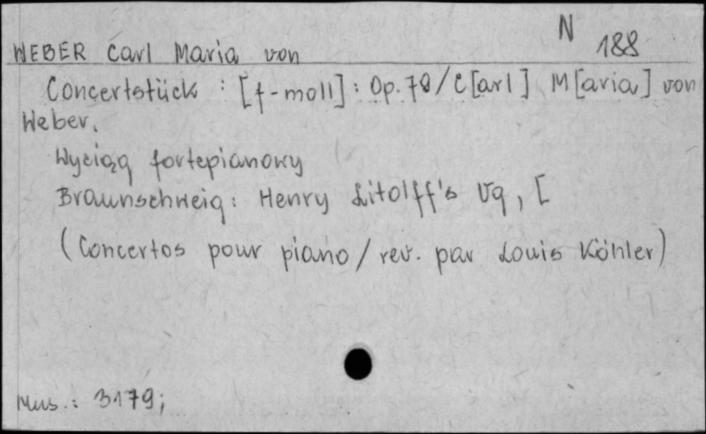 N 188
WEBER Carl Maria von
Concertstück : [f-moll] : Op. 79 / C[arl] M[aria] von
Weber.
Wyciąg fortepianowy
Braunschweig : Henry Litolff's Vg, [
(Concertos pour piano / rev. par Louis Köhler)
Mus.: 3179;